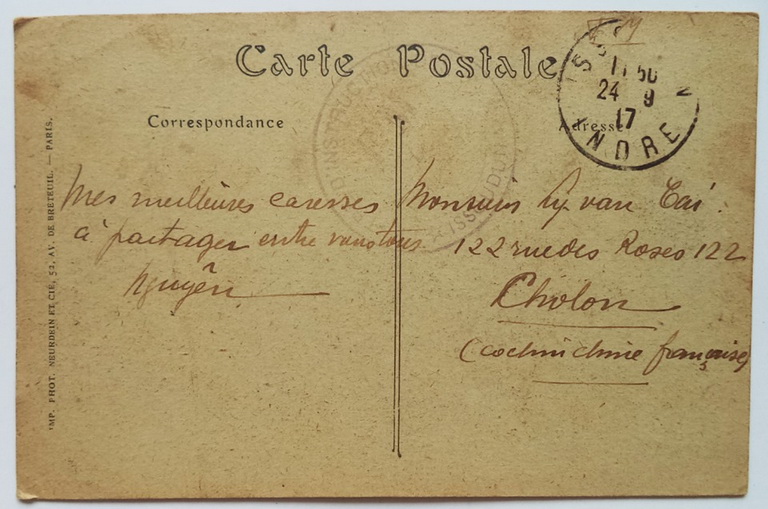 Carte Postale
ISSOUDUN
11 50
24 9
17
INDRE
Correspondance
Adresse
Mes meilleures caresses
à partager entre vous tous
Nguyên
Monsieur Ly van Tai
122 rue des Roses 122
Cholon
(Cochinchine française)
IMP. PHOT. NEURDEIN ET CIE, 52, AV. DE BRETEUIL. — PARIS.